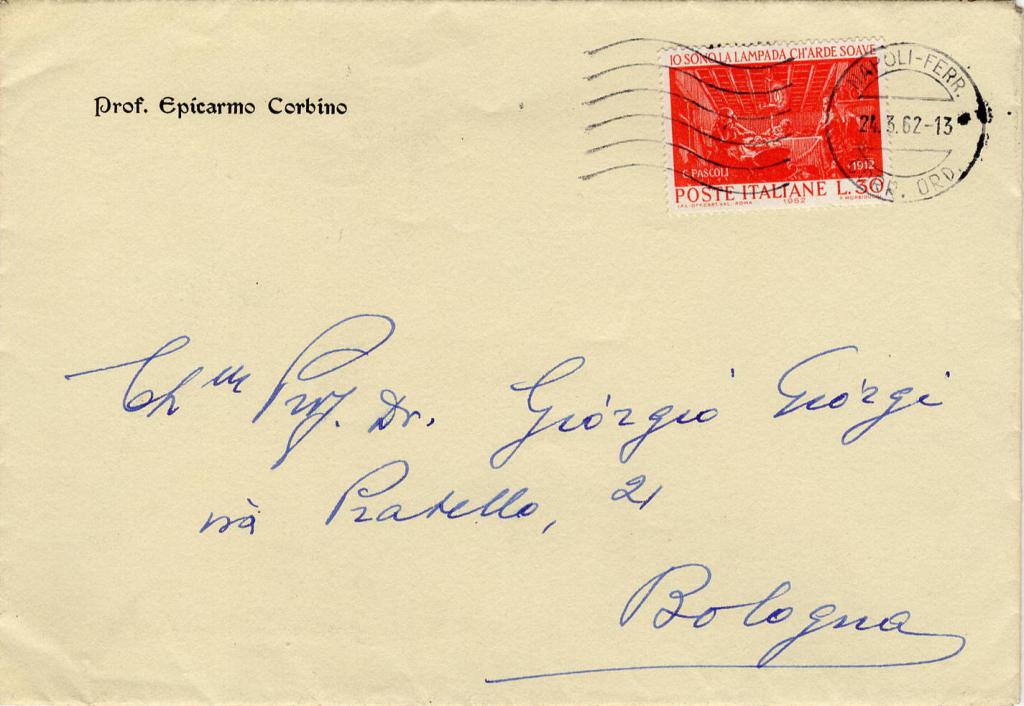 Prof. Epicarmo Corbino
IO SONO LA LAMPADA CH'ARDE SOAVE
G. PASCOLI
1912
POSTE ITALIANE L. 30
1962
NAPOLI-FERR.
24.3.62-13
ORD.
Ch.mo Prof. Dr. Giorgio Giorgi
via Pratello, 21
Bologna